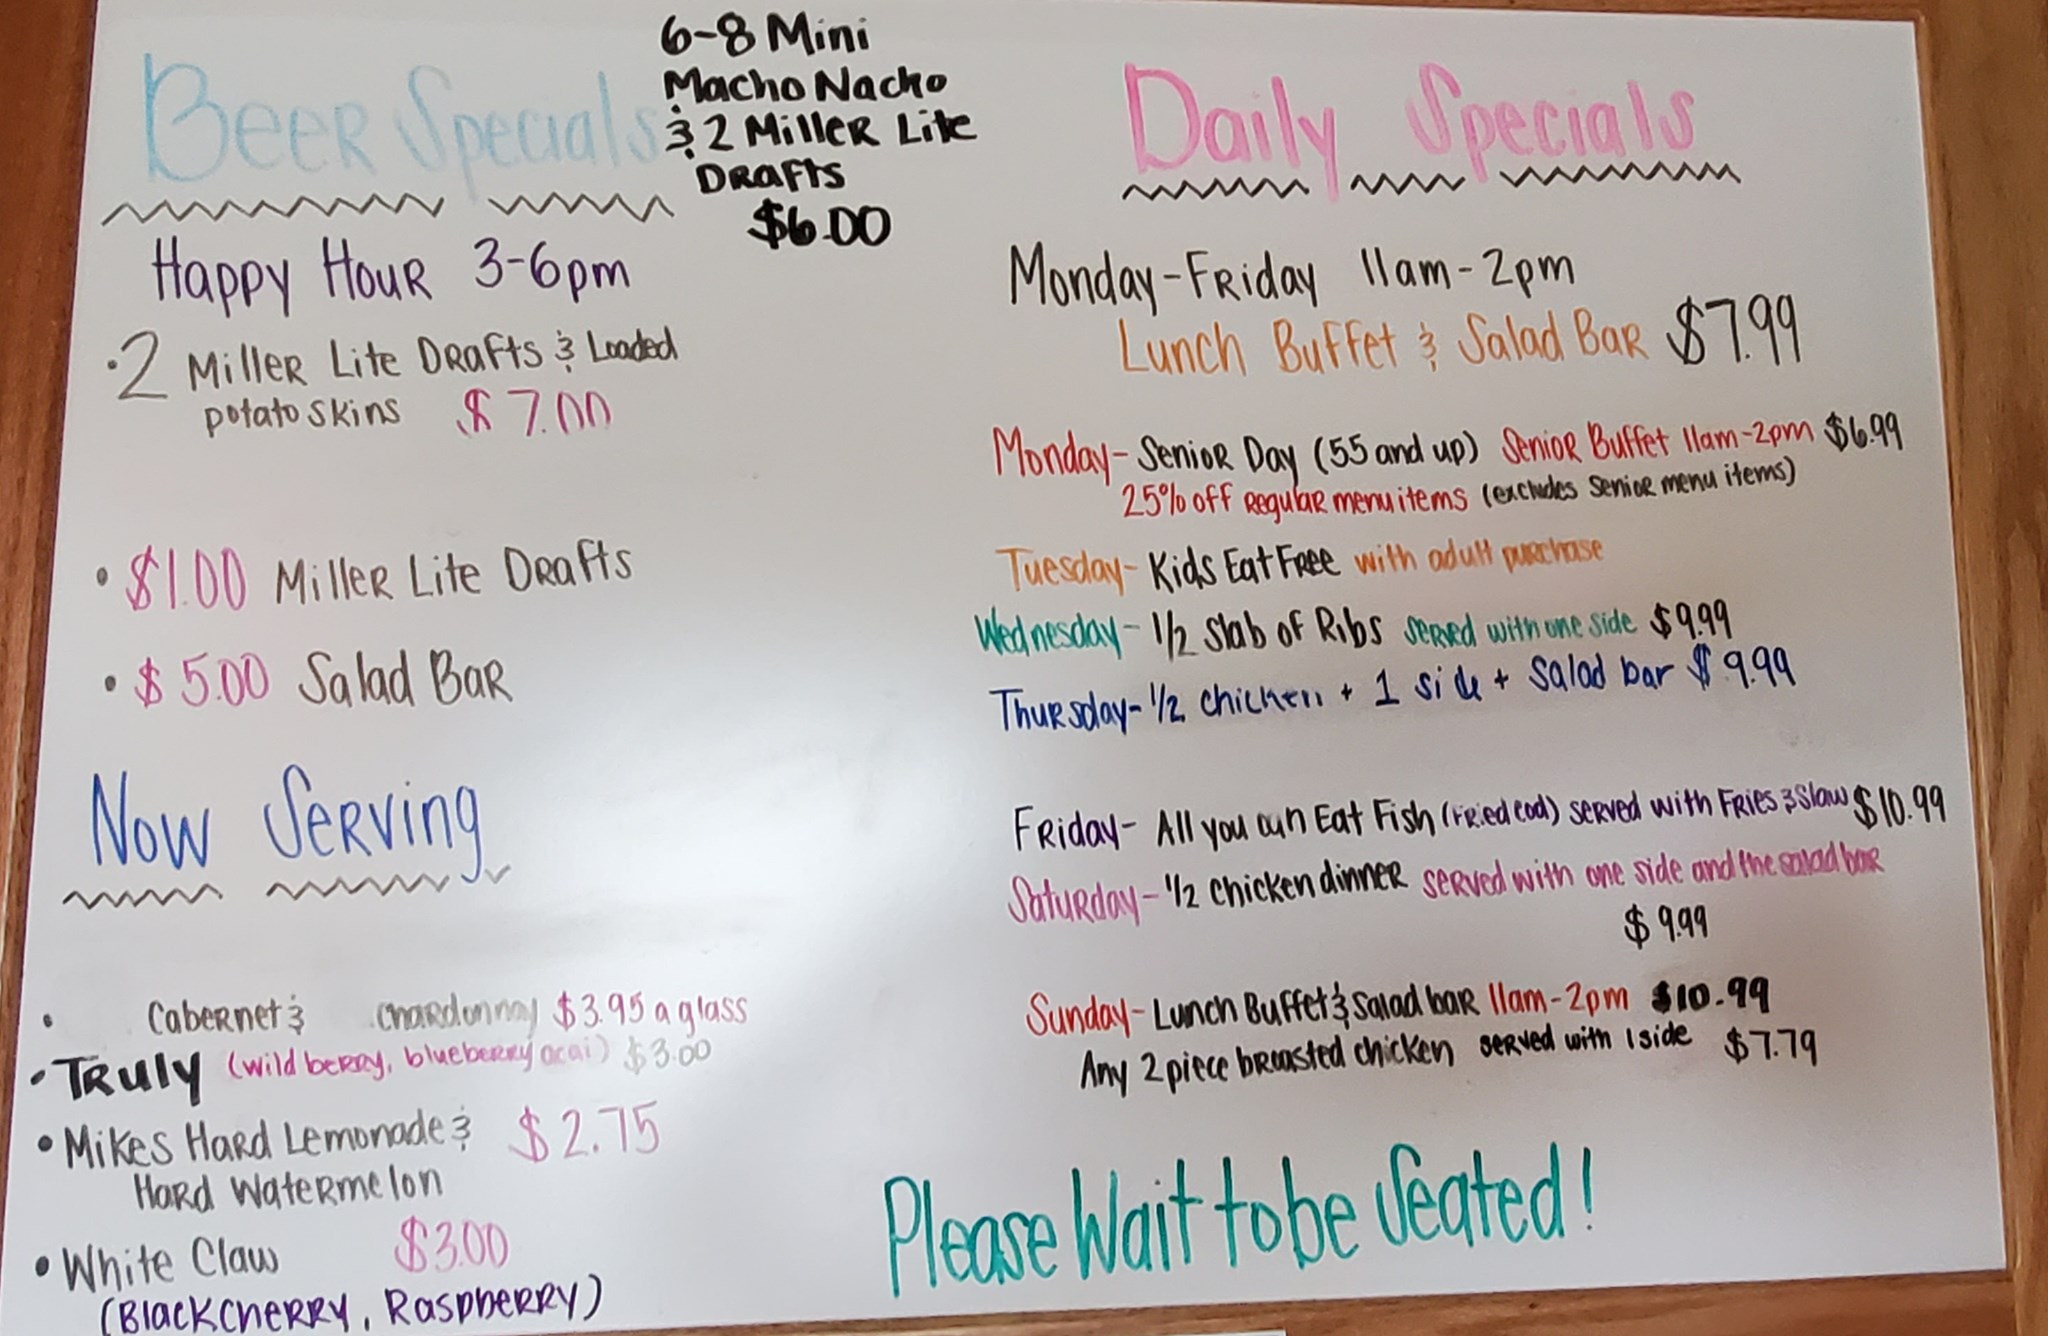 Beer Specials
6-8 Mini
Macho Nacho
& 2 Miller Lite
Drafts
$6.00
Happy Hour 3-6pm
• 2 Miller Lite Drafts & Loaded
potato skins $7.00
• $1.00 Miller Lite Drafts
• $5.00 Salad Bar
Now Serving
• Cabernet & chardonnay $3.95 a glass
• Truly (wild berry, blueberry acai) $3.00
• Mikes Hard Lemonade & $2.75
Hard Watermelon
• White Claw $3.00
(Blackcherry, Raspberry)
Daily Specials
Monday-Friday 11am-2pm
Lunch Buffet & Salad Bar $7.99
Monday- Senior Day (55 and up) Senior Buffet 11am-2pm $6.99
25% off Regular menu items (excludes Senior menu items)
Tuesday- Kids Eat Free with adult purchase
Wednesday- 1/2 Slab of Ribs served with one side $9.99
Thursday- 1/2 chicken + 1 side + salad bar $9.99
Friday- All you can Eat Fish (Fried Cod) served with Fries & Slaw $10.99
Saturday- 1/2 chicken dinner served with one side and the salad bar
$9.99
Sunday- Lunch Buffet & Salad bar 11am-2pm $10.99
Any 2 piece broasted chicken served with 1 side $7.79
Please Wait to be Seated!